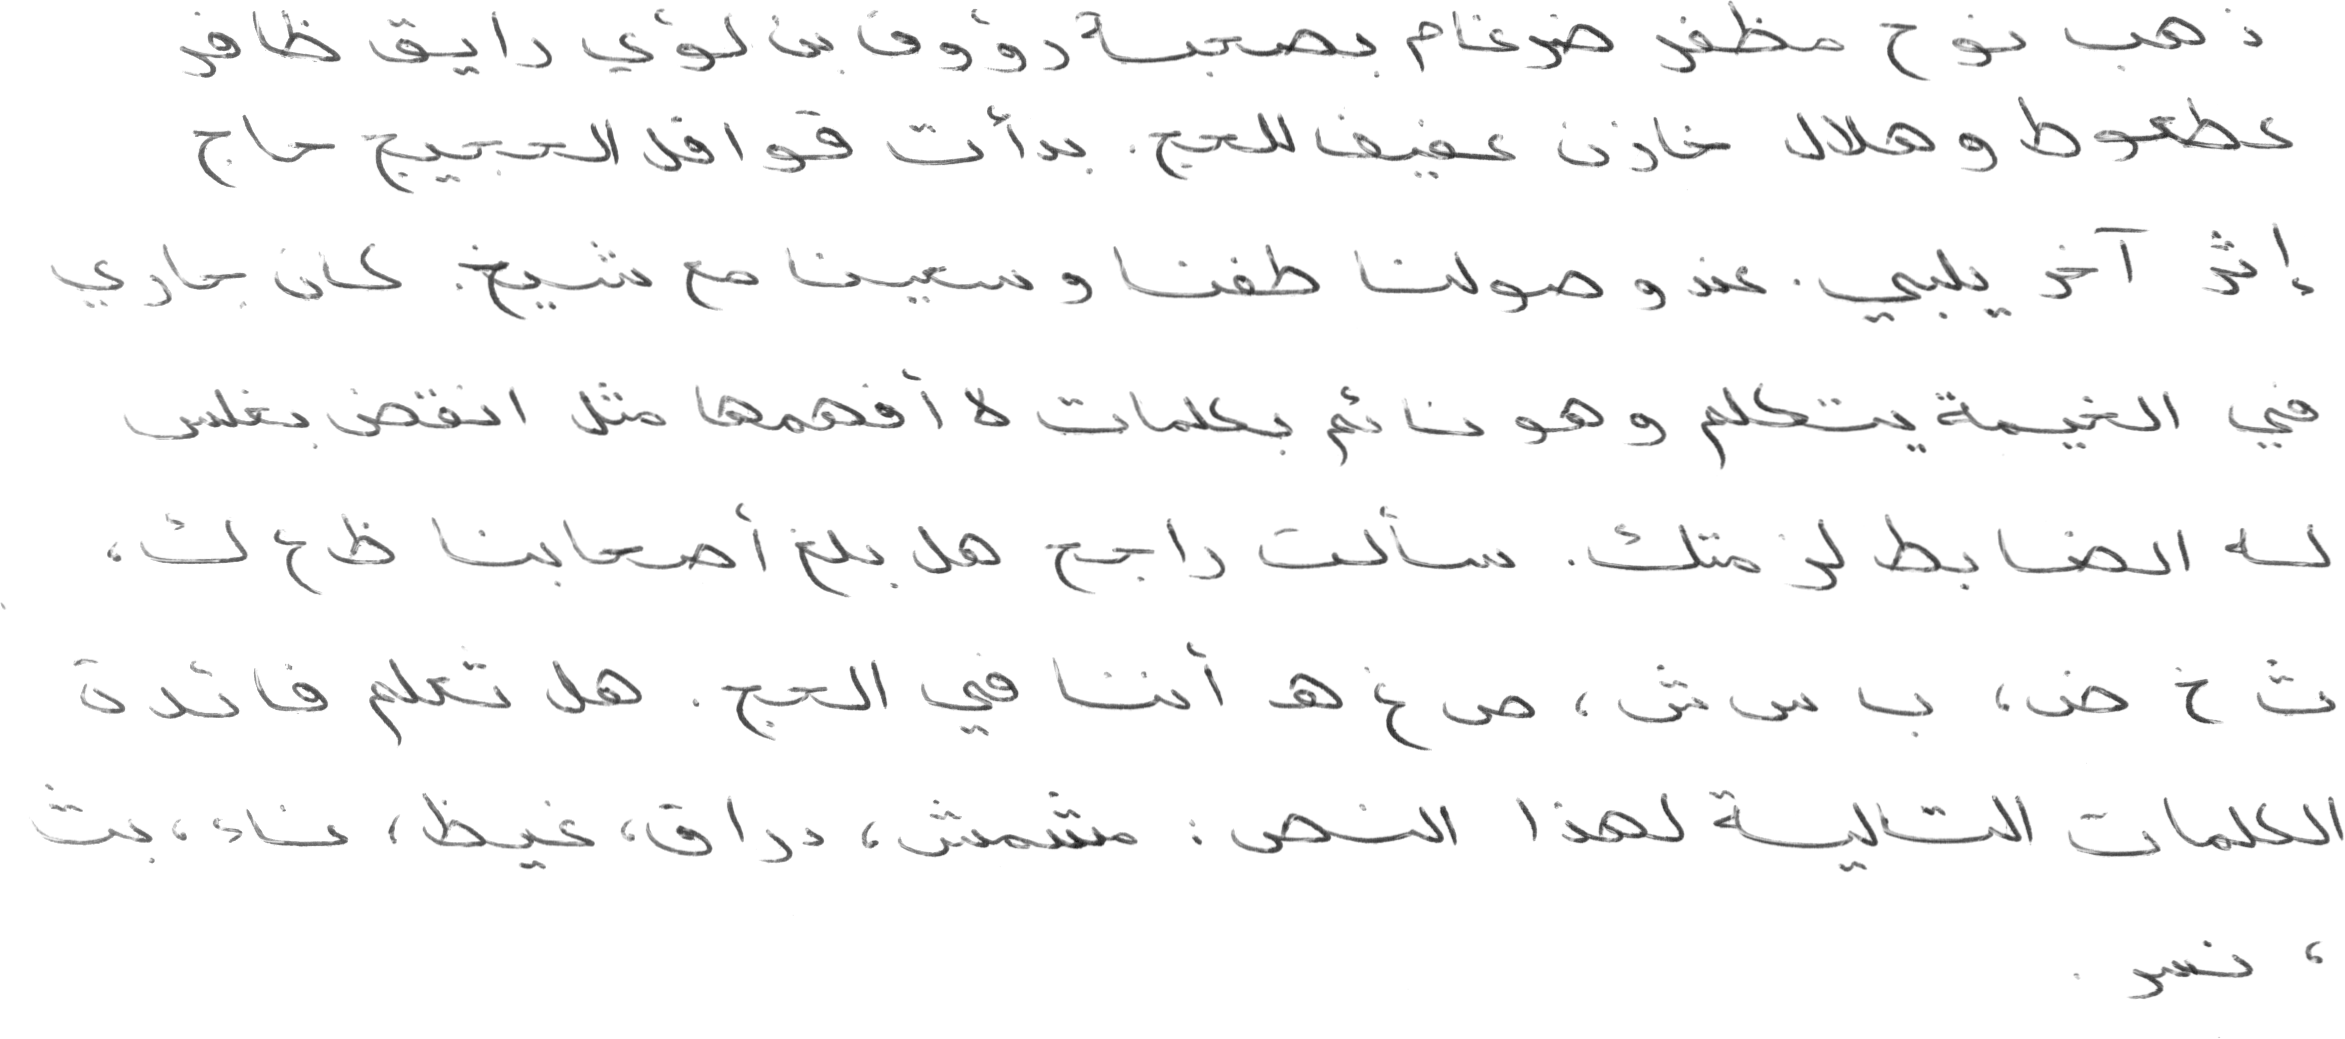 ذهب نوح مظفر ضرغام بصحبة رؤوف بن لؤي رايق ظافر
عطعوط وهلال خازن عفيف للحج. بدأت قوافل الحجيج حاج
إثر آخر يلبي. عند وصولنا طفنا وسعينا مع شيخ. كان جاري
في الخيمة يتكلم وهو نائم بكلمات لا أفهمها مثل انقض بغلس
له الضابط لزمتك. سألت راجح هل بلغ أصحابنا ظ ع ث،
ث خ ض، ب س ش، ص غ هـ أننا في الحج. هل تعلم فائدة
الكلمات التالية لهذا النص: مشمش، دراق، غيظ، عناء، بث
، نسر.